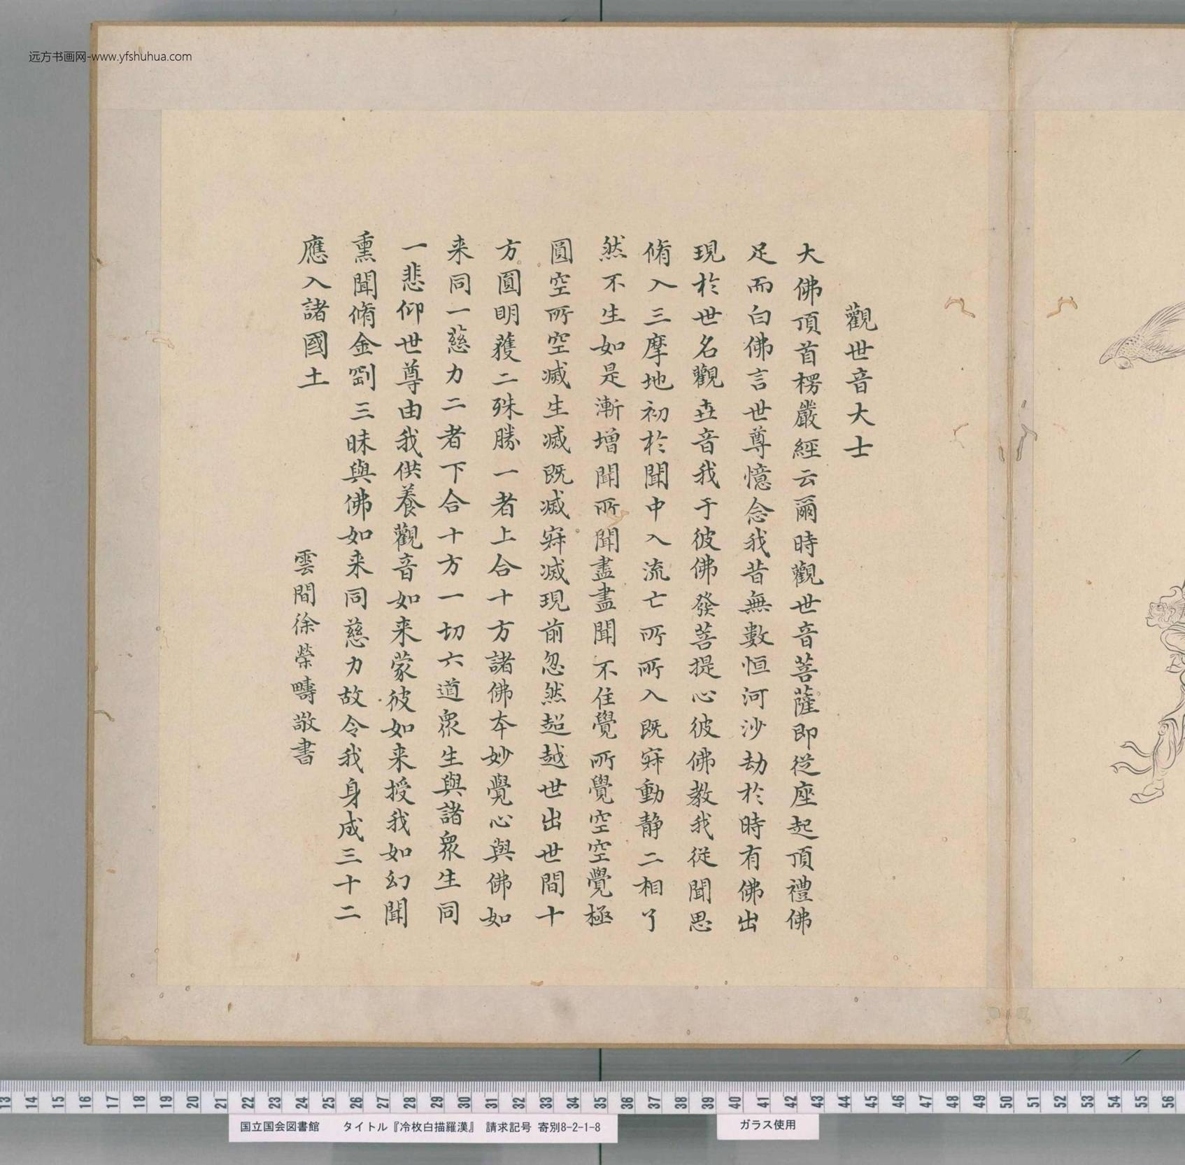 远方书画网-www.yfshuhua.com
觀世音大士
大佛頂首楞嚴經云爾時觀世音菩薩即從座起頂禮佛
足而白佛言世尊憶念我昔無數恒河沙劫於時有佛出
現於世名觀壵音我于彼佛發菩提心彼佛教我從聞思
脩入三摩地初於聞中入流亡所所入既寂動靜二相了
然不生如是漸增聞所聞盡盡聞不住覺所覺空空覺極
圓空所空滅生滅既滅寂滅現前忽然超越世出世間十
方圓明蒦二殊勝一者上合十方諸佛本妙覺心與佛如
来同一慈力二者下合十方一切六道眾生與諸眾生同
一悲仰世尊由我供養觀音如来蒙彼如来授我如幻聞
熏聞脩金剛三昧與佛如来同慈力故令我身成三十二
應入諸國土
雲間徐榮疇敬書
13 14 15 16 17 18 19 20 21 22 23 24 25 26 27 28 29 30 31 32 33 34 35 36 37 38 39 40 41 42 43 44 45 46 47 48 49 50 51 52 53 54 55 56
国立国会図書館 タイトル『冷枚白描羅漢』 請求記号 寄別8-2-1-8
ガラス使用